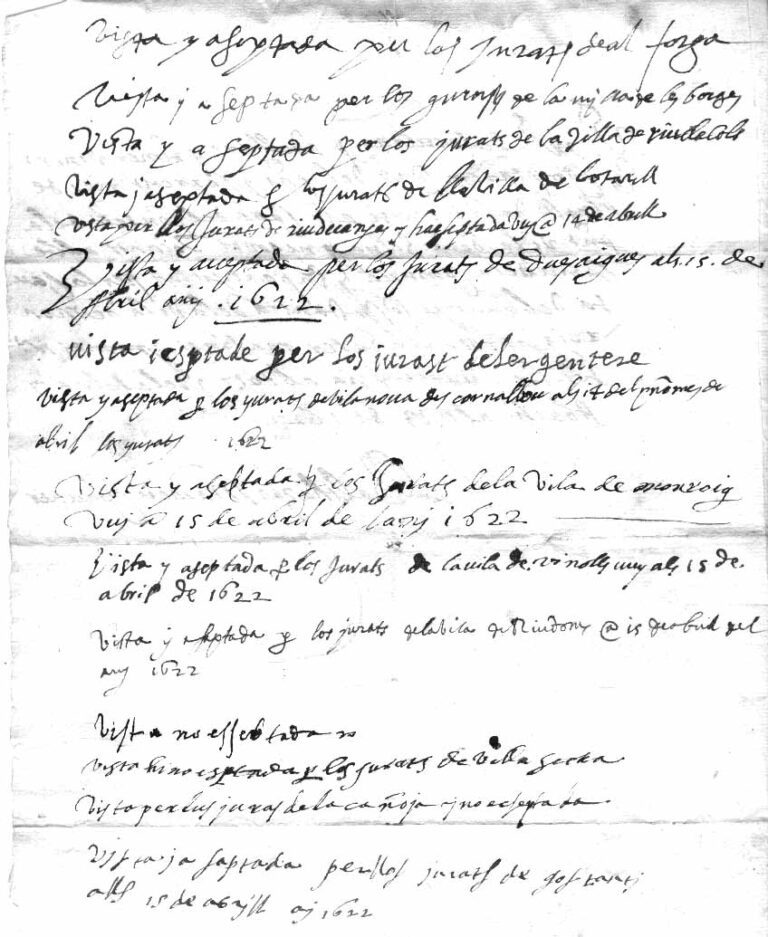 vista y aseptada per los jurats de al forga
vista y aseptada per los jurats de la vila de les borges
vista y aseptada per los jurats de la villa de riudecols
vista j aseptada p los jurats de lla villa de botarell
vista per llos jurats de riudecanyes y ha septada vuy @ 14 de abrill
vista y aceptada per los jurats de duesaigues als 15 de
Abril any 1622.
vista i esptade per los iurast del ergentere
vista y aseptada p los yurats de vilanova des cornallbou als 14 del pnt mes de
abril los yurats 1622
vista y aseptada p los Jurats de la vila de monroig
vuy a 15 de abril de lany 1622
vista y aseptada p los Jurats de la vila de vinolls vuy als 15 de
abril de 1622
vista y aseptada p los jurats de la vila de Riudoms @ 15 de abril del
any 1622
vista no essebtada no
vista hi no esptada p los jurats de villa secka
vista per lus juras de la canoja y no eseptada
vista ja saptada perllos jurats de gostanti
alls 15 de abrill ay 1622